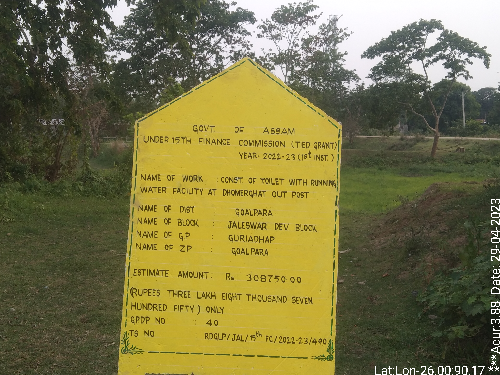 GOVT. OF ASSAM
UNDER 15TH FINANCE COMMISSION (TED GRANT)
YEAR: 2022-23 (1st INST.)
NAME OF WORK : CONST. OF TOILET WITH RUNNING
WATER FACILITY AT DHOMERGHAT OUT POST
NAME OF DIST : GOALPARA
NAME OF BLOCK : JALESWAR DEV BLOCK
NAME OF GP : GURIADHAP
NAME OF ZP : GOALPARA
ESTIMATE AMOUNT: Rs. 308750.00
(RUPEES THREE LAKH EIGHT THOUSAND SEVEN
HUNDRED FIFTY) ONLY
GPDP NO : 40
TS NO RDGLP/JAL/15th FC/2022-23/490
Lat Lon-26.00:90.17
***Acur:3.88 Date: 29-04-2023